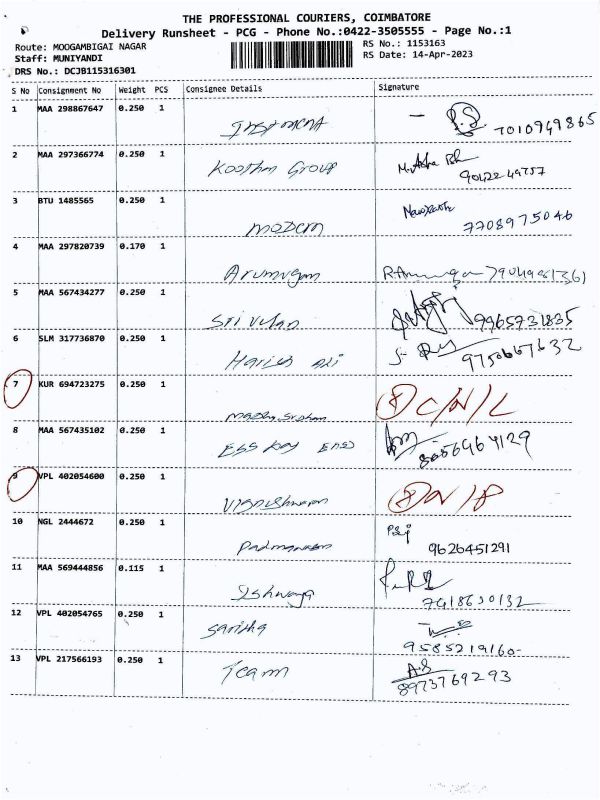 THE PROFESSIONAL COURIERS, COIMBATORE
Delivery Runsheet - PCG - Phone No.:0422-3505555 - Page No.:1
Route: MOOGAMBIGAI NAGAR RS No.: 1153163
Staff: MUNIYANDI RS Date: 14-Apr-2023
DRS No.: DCJB115316301
S No Consignment No Weight PCS Consignee Details Signature
1 MAA 298867647 0.250 1 7010949865
2 MAA 297366774 0.250 1 Koothm Group
3 BTU 1485565 0.250 1 Modcm 7708975046
4 MAA 297820739 0.170 1 Arumugam
5 MAA 567434277 0.250 1 Sri Velan 9965731835
6 SLM 317736870 0.250 1 Harish 9750667632
7 KUR 694723275 0.250 1 C/N/L
8 MAA 567435102 0.250 1 ESS Key Ents 8056464129
9 VPL 402054600 0.250 1 Vigneshwaran
10 NGL 2444672 0.250 1 9626451291
11 MAA 569444856 0.115 1 7418630132
12 VPL 402054765 0.250 1 Saritha 9585219160
13 VPL 217566193 0.250 1 Team A.S 8973769293